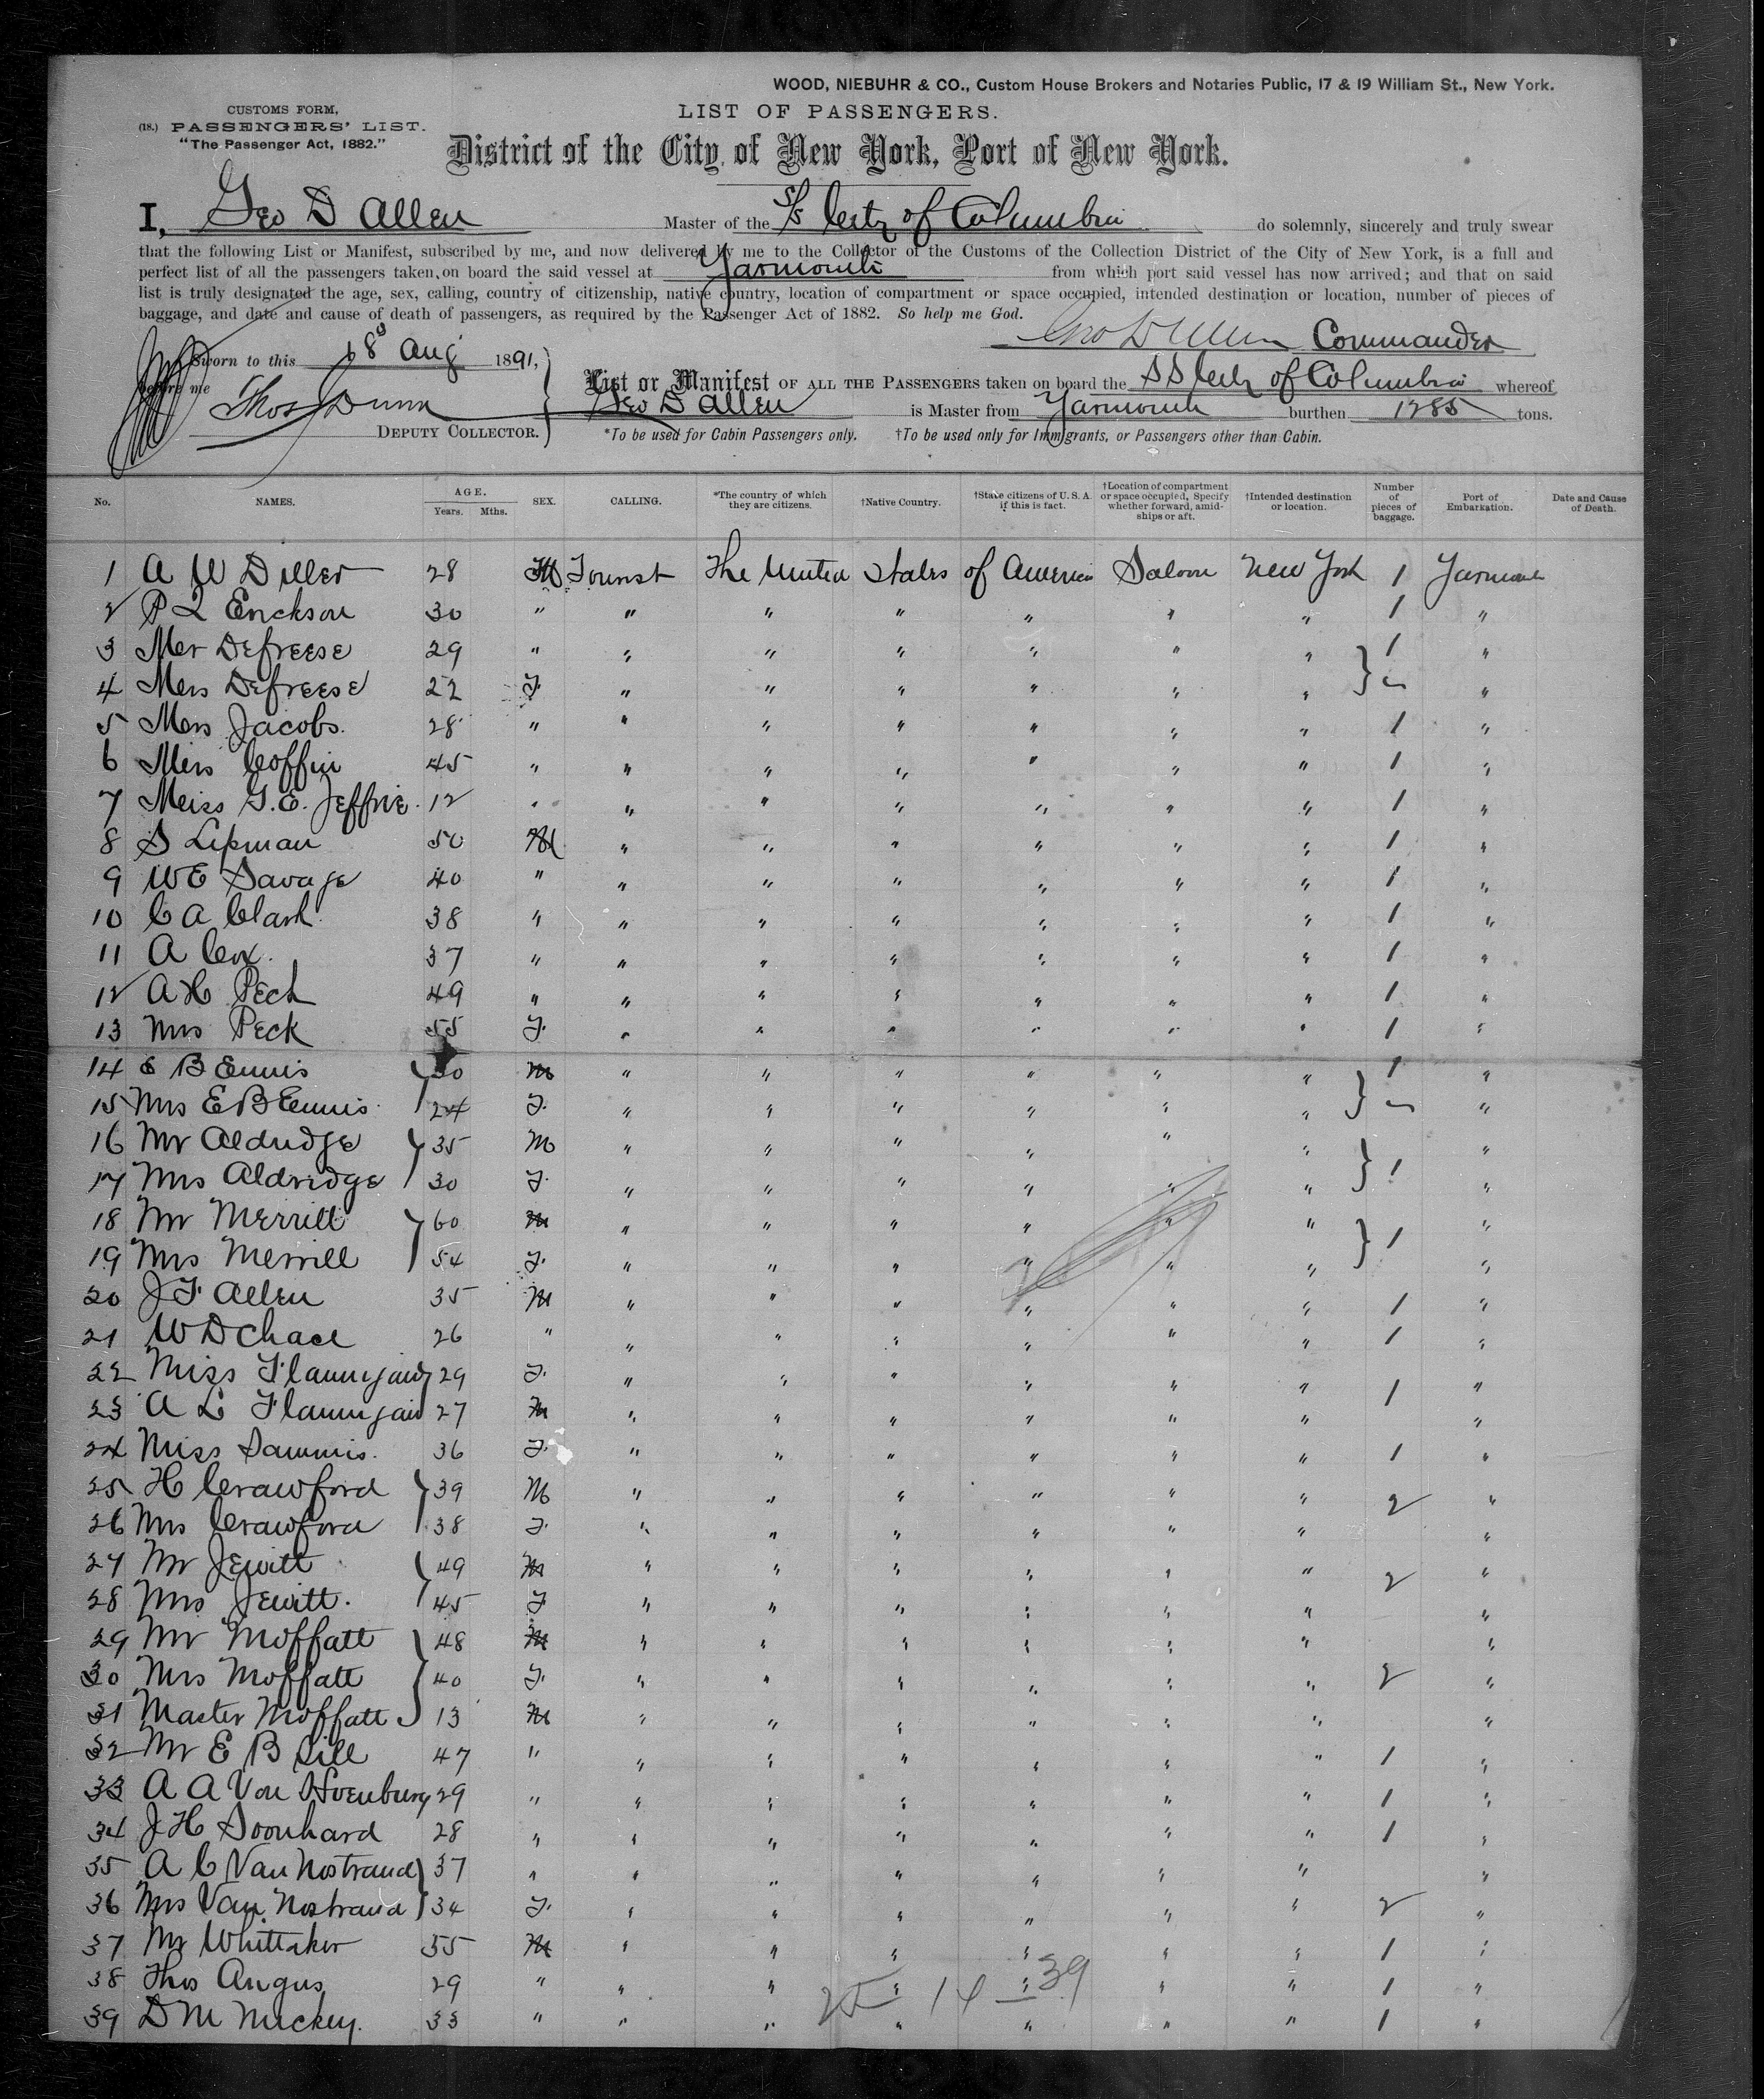 WOOD, NIEBUHR & CO., Custom House Brokers and Notaries Public, 17 & 19 William St., New York.
CUSTOMS FORM,
(18.) PASSENGERS' LIST.
"The Passenger Act, 1882."
LIST OF PASSENGERS.
District of the City of New York, Port of New York.
I, Geo D Allen Master of the S/S City of Columbia do solemnly, sincerely and truly swear
that the following List or Manifest, subscribed by me, and now delivered by me to the Collector of the Customs of the Collection District of the City of New York, is a full and
perfect list of all the passengers taken on board the said vessel at Yarmouth from which port said vessel has now arrived; and that on said
list is truly designated the age, sex, calling, country of citizenship, native country, location of compartment or space occupied, intended destination or location, number of pieces of
baggage, and date and cause of death of passengers, as required by the Passenger Act of 1882. So help me God.
Geo D Allen Commander
Sworn to this 18 Aug 1891,
before me
Thos Dunn
DEPUTY COLLECTOR.
List or Manifest OF ALL THE PASSENGERS taken on board the SS City of Columbia whereof
Geo D Allen is Master from Yarmouth burthen 1285 tons.
*To be used for Cabin Passengers only. †To be used only for Immigrants, or Passengers other than Cabin.
No. NAMES. AGE. Years. Mths. SEX. CALLING. *The country of which they are citizens. †Native Country. †State citizens of U.S.A. if this is fact. †Location of compartment or space occupied, Specify whether forward, amidships or aft. †Intended destination or location. Number of pieces of baggage. Port of Embarkation. Date and Cause of Death.
1 A W Diller 28 M Tourist The United States of America Saloon New York 1 Yarmouth
2 P L Erickson 30 " " " " " " " 1 "
3 Mr Defreese 29 " " " " " " " } 1 "
4 Mrs Defreese 22 F. " " " " " " "
5 Mrs Jacobs. 28 " " " " " " " 1 "
6 Miss Coffin 45 " " " " " " " 1 "
7 Miss G. E. Jeffrie 12 " " " " " " " 1 "
8 S Lipman 50 M " " " " " " 1 "
9 W E Savage 40 " " " " " " " 1 "
10 C A Clark 38 " " " " " " " 1 "
11 A Cox. 37 " " " " " " " 1 "
12 A H Peck 49 " " " " " " " 1 "
13 Mrs Peck 55 F. " " " " " " 1 "
14 E B Ennis 30 M " " " " " " } 1 "
15 Mrs E B Ennis 24 F. " " " " " " "
16 Mr Aldridge 35 M " " " " " " } "
17 Mrs Aldridge 30 F. " " " " " " 1 "
18 Mr Merrill 60 M " " " " " " } "
19 Mrs Merrill 54 F. " " " " " " 1 "
20 J F Allen 35 M " " " " " " 1 "
21 W D Chace 26 " " " " " " " 1 "
22 Miss Flannigan 29 F. " " " " " " 1 "
23 A L Flannigan 27 M " " " " " " "
24 Miss Sammis. 36 F. " " " " " " 1 "
25 H Crawford 39 M " " " " " " 2 "
26 Mrs Crawford 38 F. " " " " " " "
27 Mr Jewitt 49 M " " " " " " 2 "
28 Mrs Jewitt. 45 F " " " " " " "
29 Mr Moffatt 48 M " " " " " " "
30 Mrs Moffatt 40 F. " " " " " " 2 "
31 Master Moffatt 13 M " " " " " " "
32 Mr E B Sill 47 " " " " " " " 1 "
33 A A Von 29 " " " " " " " 1 "
34 J H 28 " " " " " " " 1 "
35 A C Van Nostrand 37 " " " " " " " "
36 Mrs Van Nostrand 34 F. " " " " " " 2 "
37 Mr Whittaker 55 M " " " " " " 1 "
38 Thos Angus 29 " " " " " " " 1 "
39 D M Mickey. 33 " " " " " " " 1 "
25 14 39